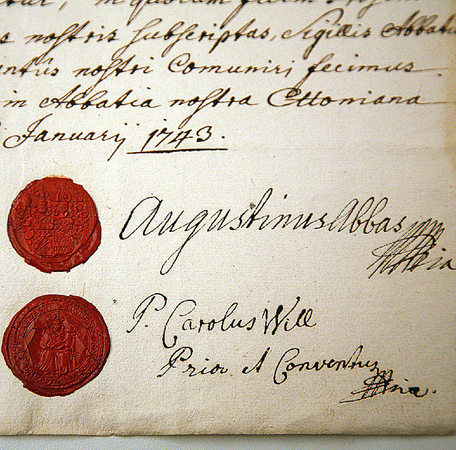 in quocum fidem
nostris subscriptas, Sigillis Abbatia
nostri Communiri fecimus
in Abbatia nostra Ettoniana
Januarij 1743.
Augustinus Abbas
P. Carolus Will
Prior et Conventus